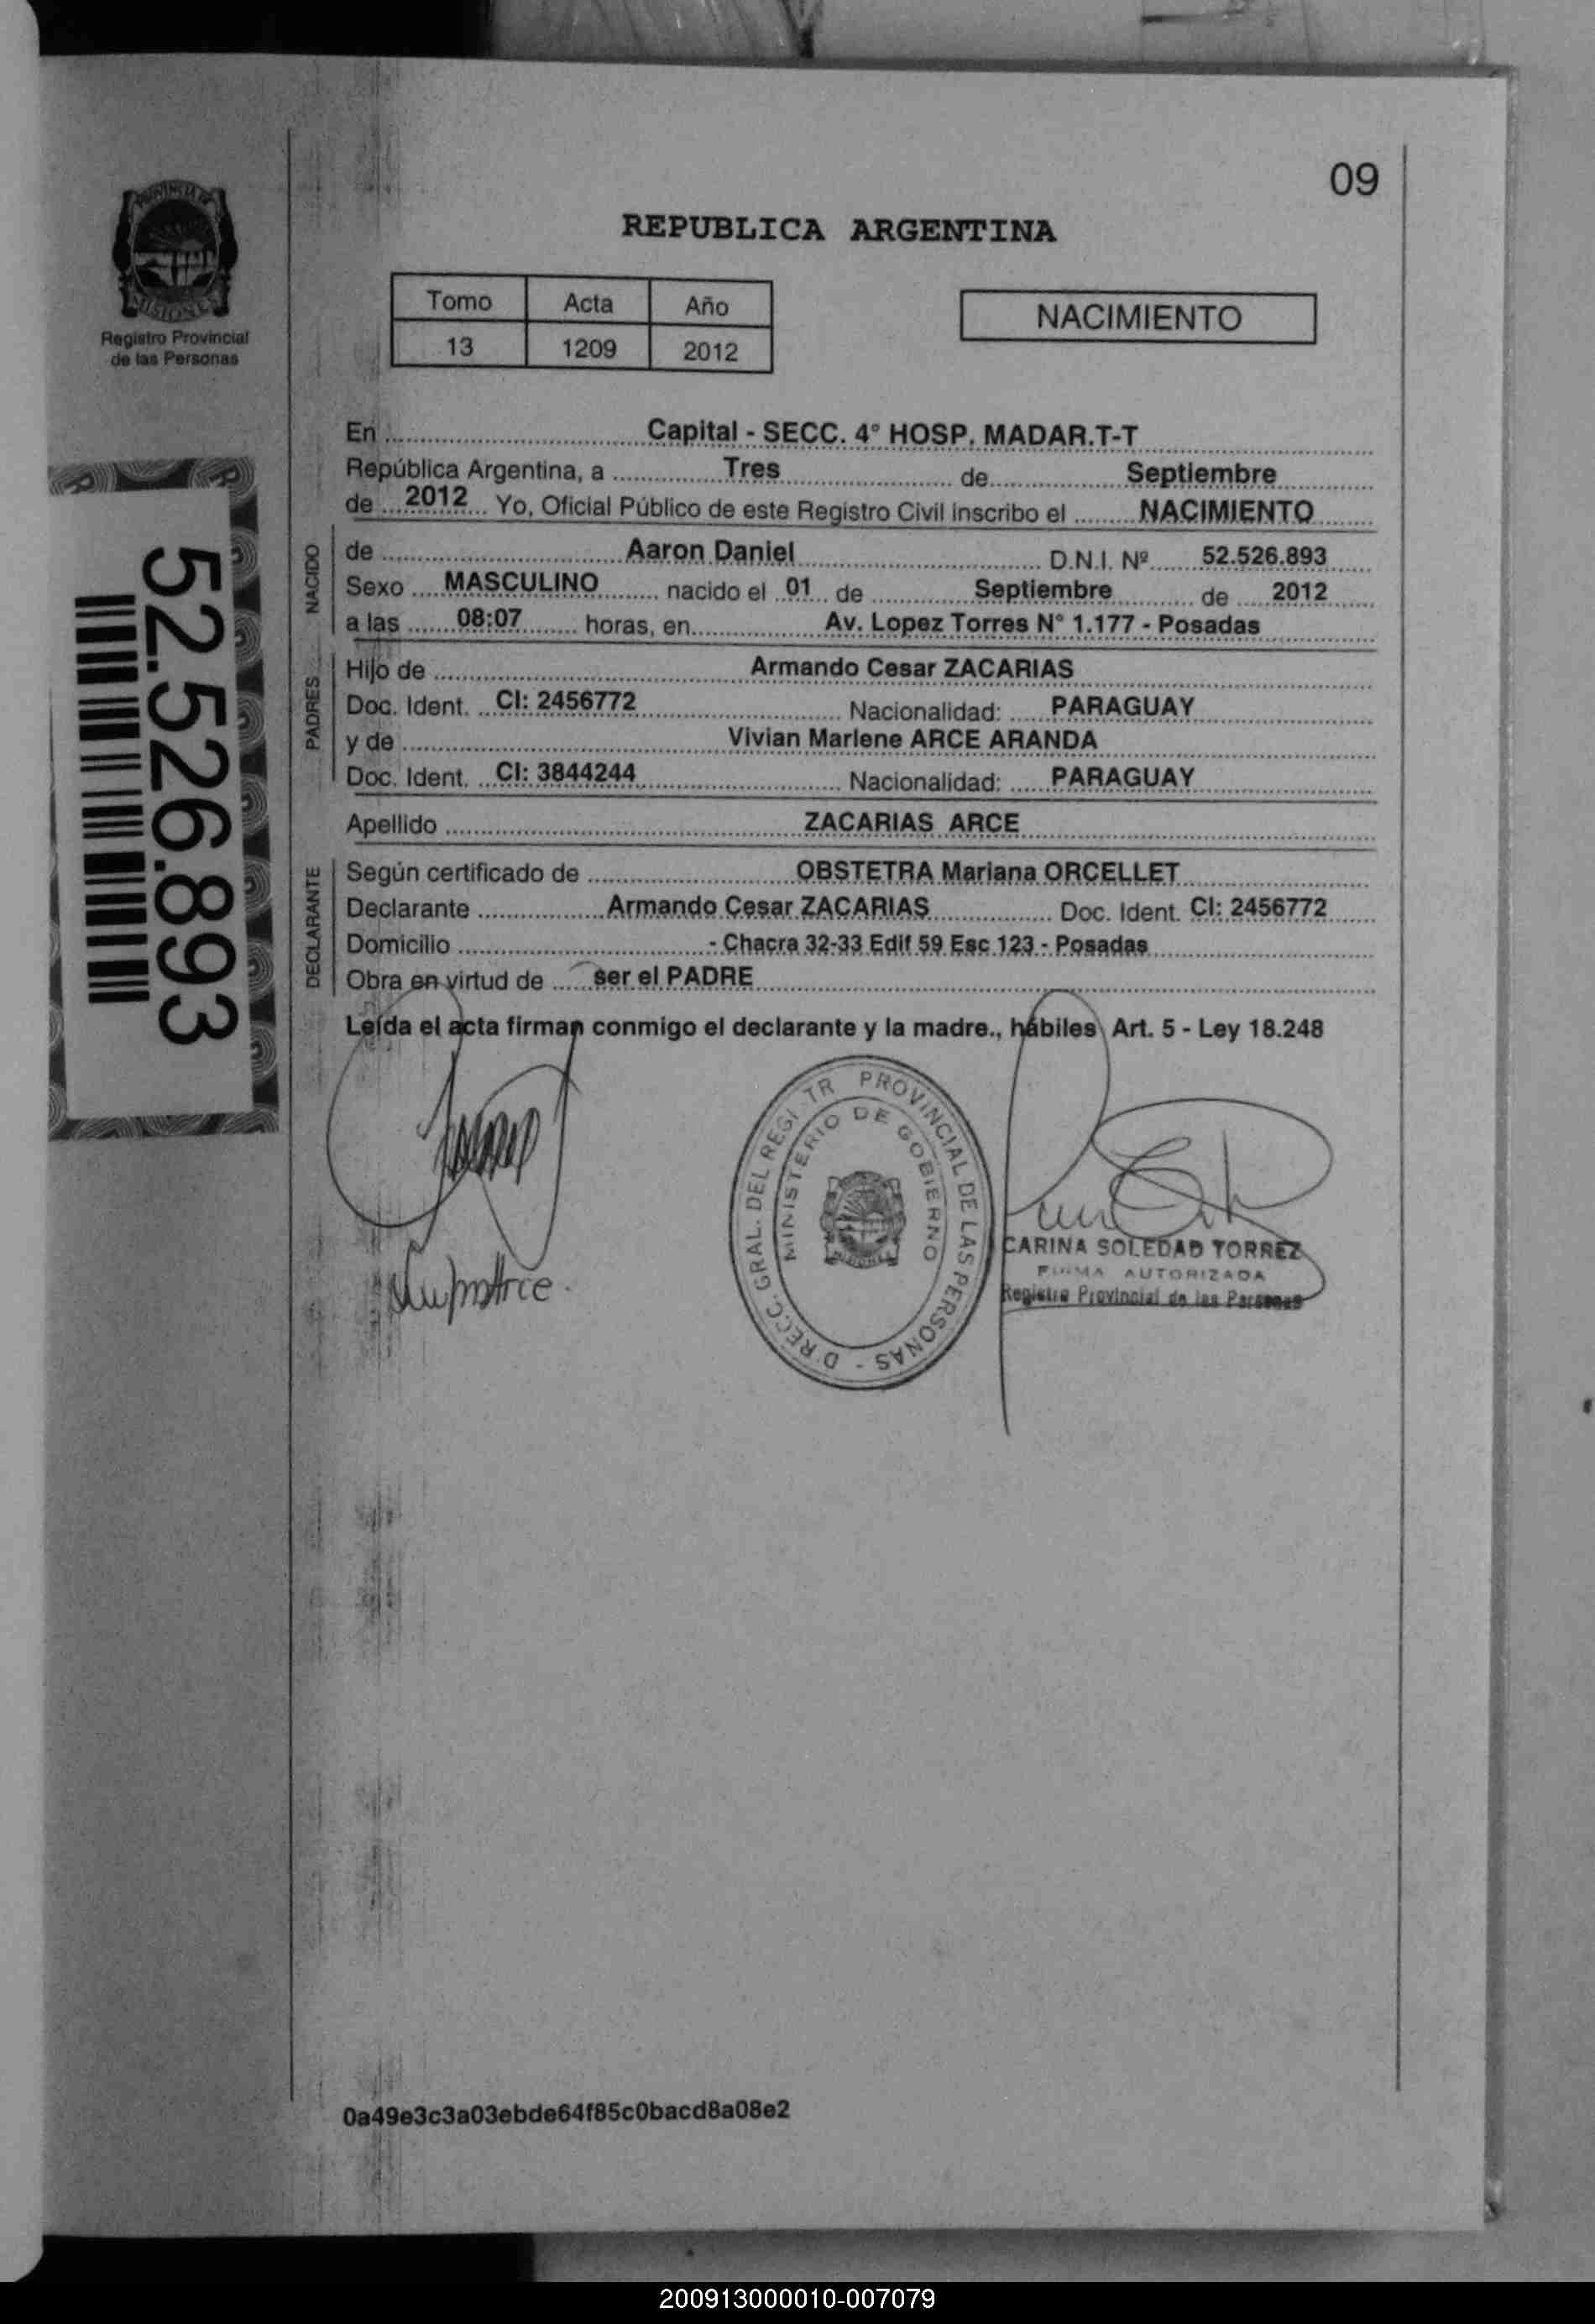 09
REPUBLICA ARGENTINA
PROVINCIA DE
MISIONES
Registro Provincial
de las Personas
Tomo Acta Año
13 1209 2012
NACIMIENTO
52.526.893
En Capital - SECC. 4° HOSP. MADAR.T-T
República Argentina, a Tres de Septiembre
de 2012 Yo, Oficial Público de este Registro Civil inscribo el NACIMIENTO
NACIDO
de Aaron Daniel D.N.I. Nº 52.526.893
Sexo MASCULINO nacido el 01 de Septiembre de 2012
a las 08:07 horas, en Av. Lopez Torres N° 1.177 - Posadas
PADRES
Hijo de Armando Cesar ZACARIAS
Doc. Ident. CI: 2456772 Nacionalidad: PARAGUAY
y de Vivian Marlene ARCE ARANDA
Doc. Ident. CI: 3844244 Nacionalidad: PARAGUAY
Apellido ZACARIAS ARCE
DECLARANTE
Según certificado de OBSTETRA Mariana ORCELLET
Declarante Armando Cesar ZACARIAS Doc. Ident. CI: 2456772
Domicilio - Chacra 32-33 Edif 59 Esc 123 - Posadas
Obra en virtud de ser el PADRE
Leída el acta firman conmigo el declarante y la madre., hábiles Art. 5 - Ley 18.248
D RECC. GRAL. DEL REGI TR PROVINCIAL DE LAS PERSONAS -
MINISTERIO DE GOBIERNO
CARINA SOLEDAD TORREZ
FIRMA AUTORIZADA
Registro Provincial de las Personas
0a49e3c3a03ebde64f85c0bacd8a08e2
200913000010-007079